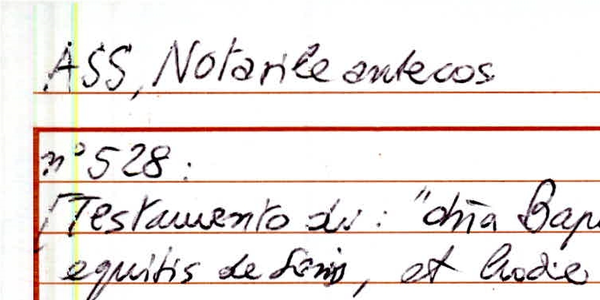 ASS, Notarile antecos
n° 528:
[Testamento di: "dña Bap
equitis de Senis, et hodie